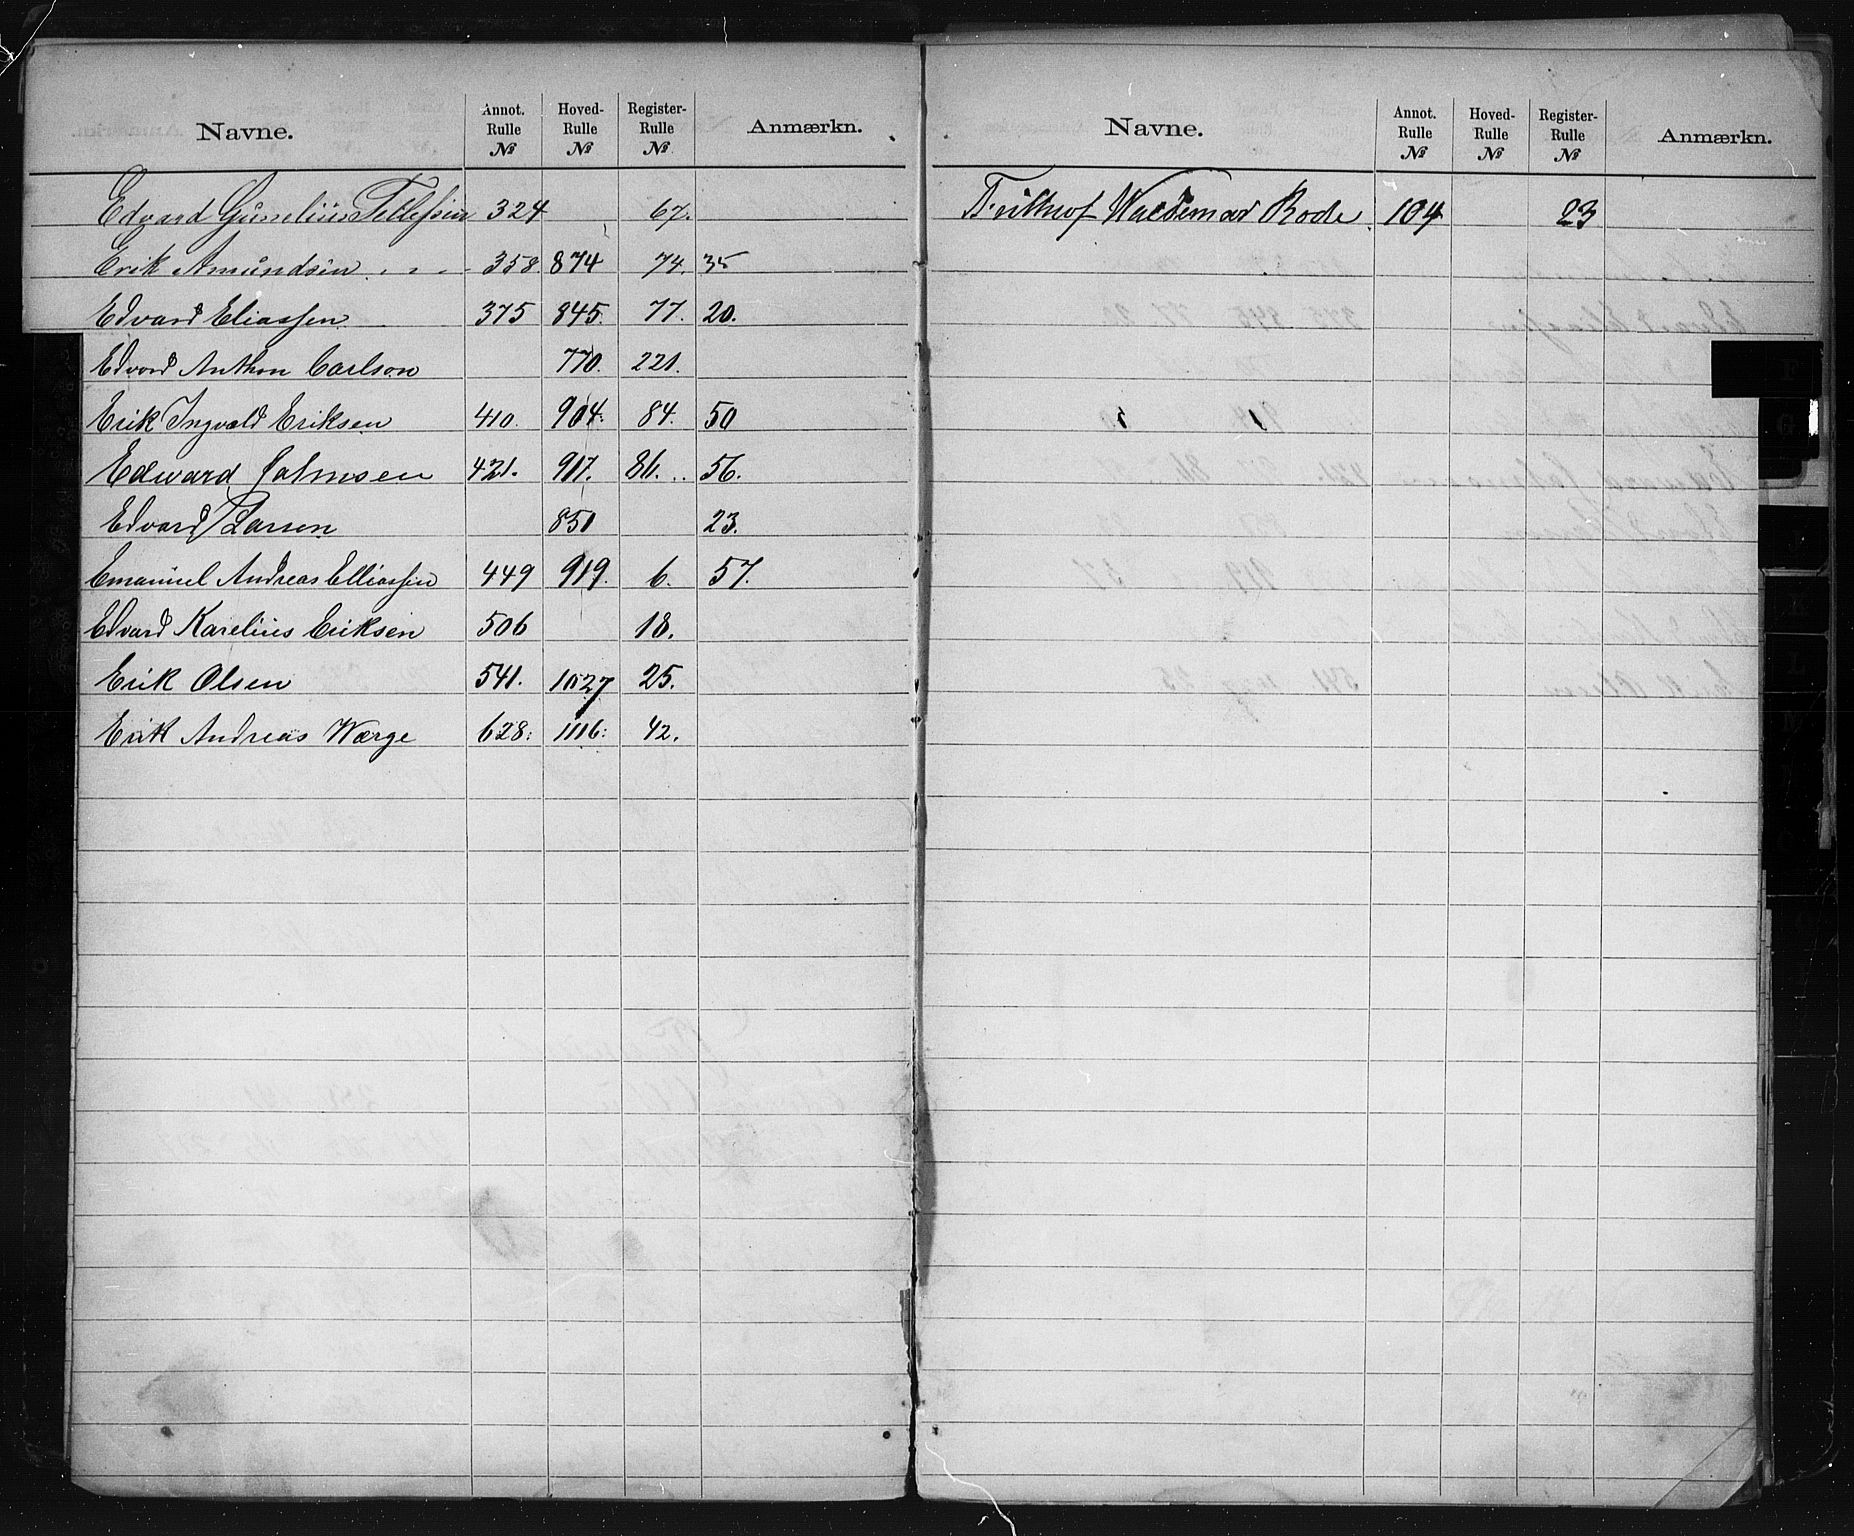 Navne. Annot. Rulle № Hoved-Rulle № Register-Rulle № Anmærkn.
Edvard Gunelius Tellefsen 324 67.
Erik Amundsen . . . 358 874 74. 35
Edvard Eliassen 375 845. 77. 20.
Edvard Anthon Carlson 770. 221.
Erik Ingvald Eriksen 410. 904. 84. 50
Edward Johnsen 421. 917. 86. .. 56.
Edvard Larsen 851 23.
Emanuel Andreas Elliassen 449 919. 6. 57.
Edvard Karelius Eriksen 506 18.
Erik Olsen 541. 1027 25.
Erik Andreas Wærge 628: 1116: 42.
Navne. Annot. Rulle № Hoved-Rulle № Register-Rulle № Anmærkn.
Frithhof Waldemar Rode. 104 23
F
G
L
M